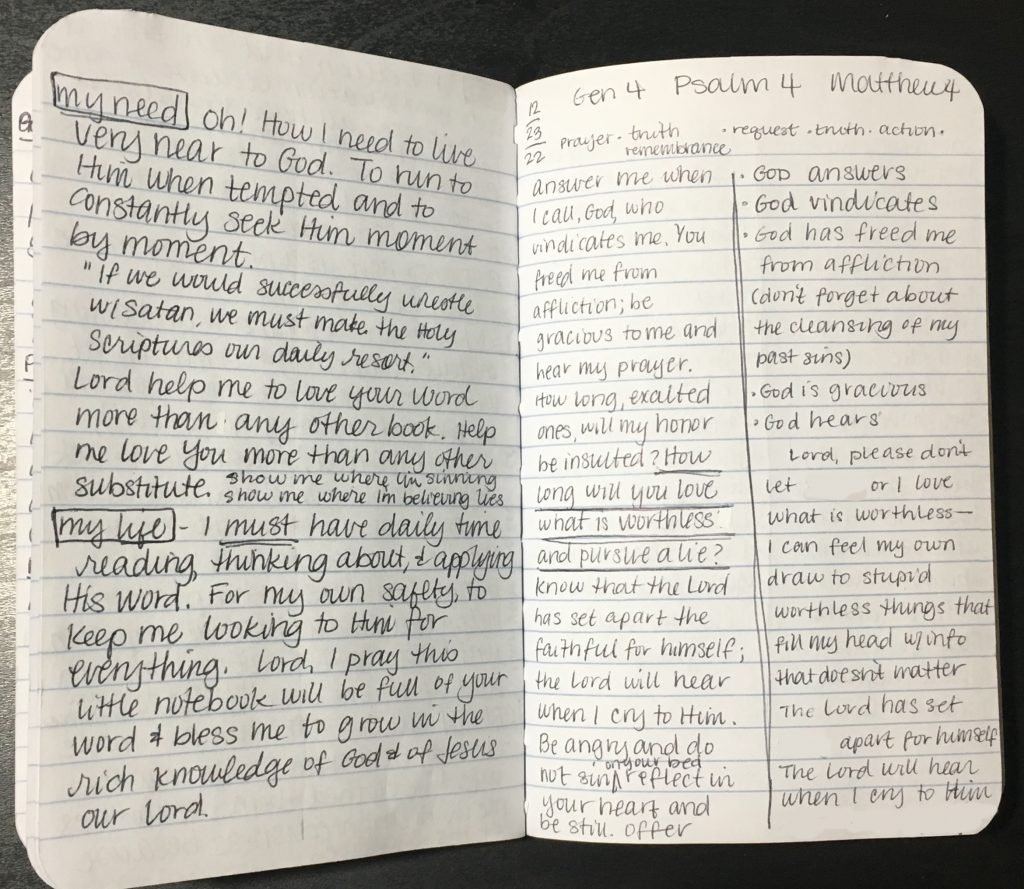 my need Oh! How I need to live
very near to God. To run to
Him when tempted and to
constantly seek Him moment
by moment.
"If we would successfully wrestle
w/Satan, we must make the Holy
Scriptures our daily resort."
Lord help me to love your word
more than any other book. Help
me love You more than any other
substitute. show me where im sinning
show me where im believing lies
my life - I must have daily time
reading, thinking about, & applying
His word. For my own safety, to
keep me looking to Him for
everything. Lord, I pray this
little notebook will be full of your
word & bless me to grow in the
rich knowledge of God & of Jesus
our Lord.
Gen 4 Psalm 4 Matthew 4
12
23
22
prayer · truth
remembrance
· request · truth · action ·
answer me when
I call, God, who
vindicates me. You
freed me from
affliction; be
gracious to me and
hear my prayer.
How long, exalted
ones, will my honor
be insulted? How
long will you love
what is worthless
and pursue a lie?
know that the Lord
has set apart the
faithful for himself;
the Lord will hear
when I cry to Him.
Be angry and do
on your bed
not sin; reflect in
your heart and
be still. Offer
· GOD answers
· God vindicates
· God has freed me
from affliction
(don't forget about
the cleansing of my
past sins)
· God is gracious
· God hears
Lord, please don't
let or I love
what is worthless—
I can feel my own
draw to stupid
worthless things that
fill my head w/info
that doesn't matter
The Lord has set
apart for himself
The Lord will hear
when I cry to Him